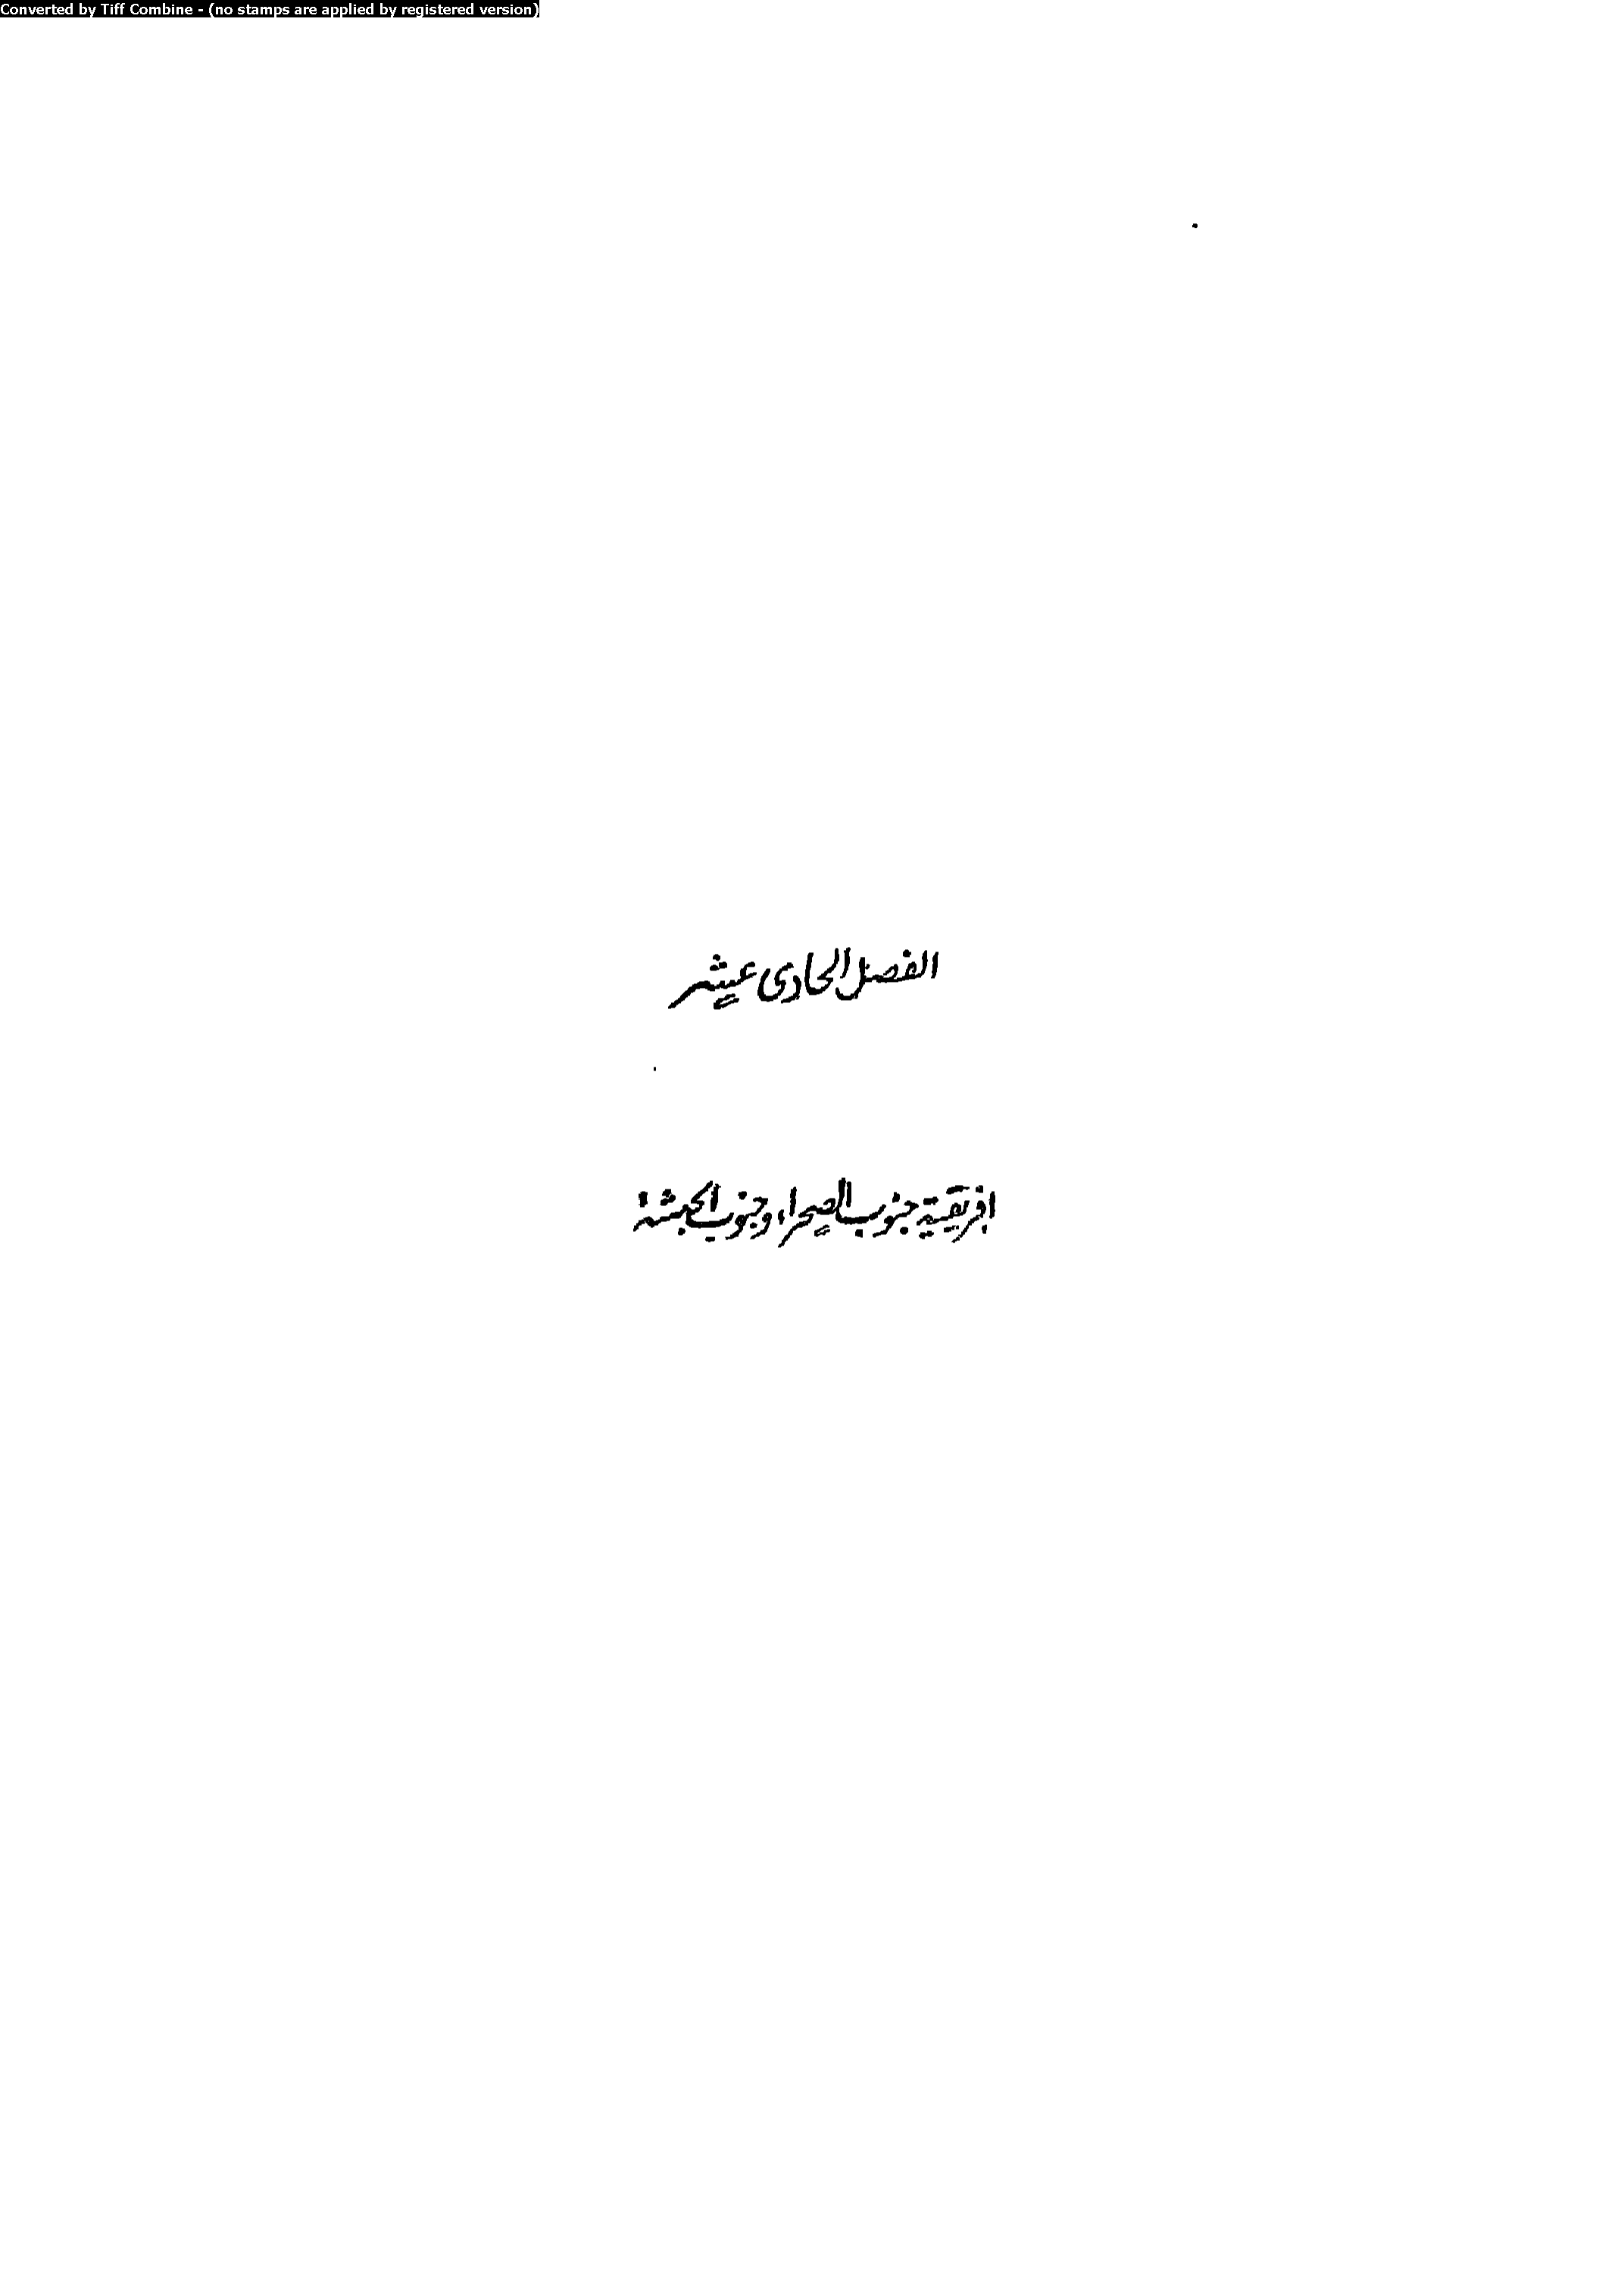 Converted by Tiff Combine - (no stamps are applied by registered version)
الفصل الحادى عشر
افريقية جنوب الصحراء وجنوب الحبشة